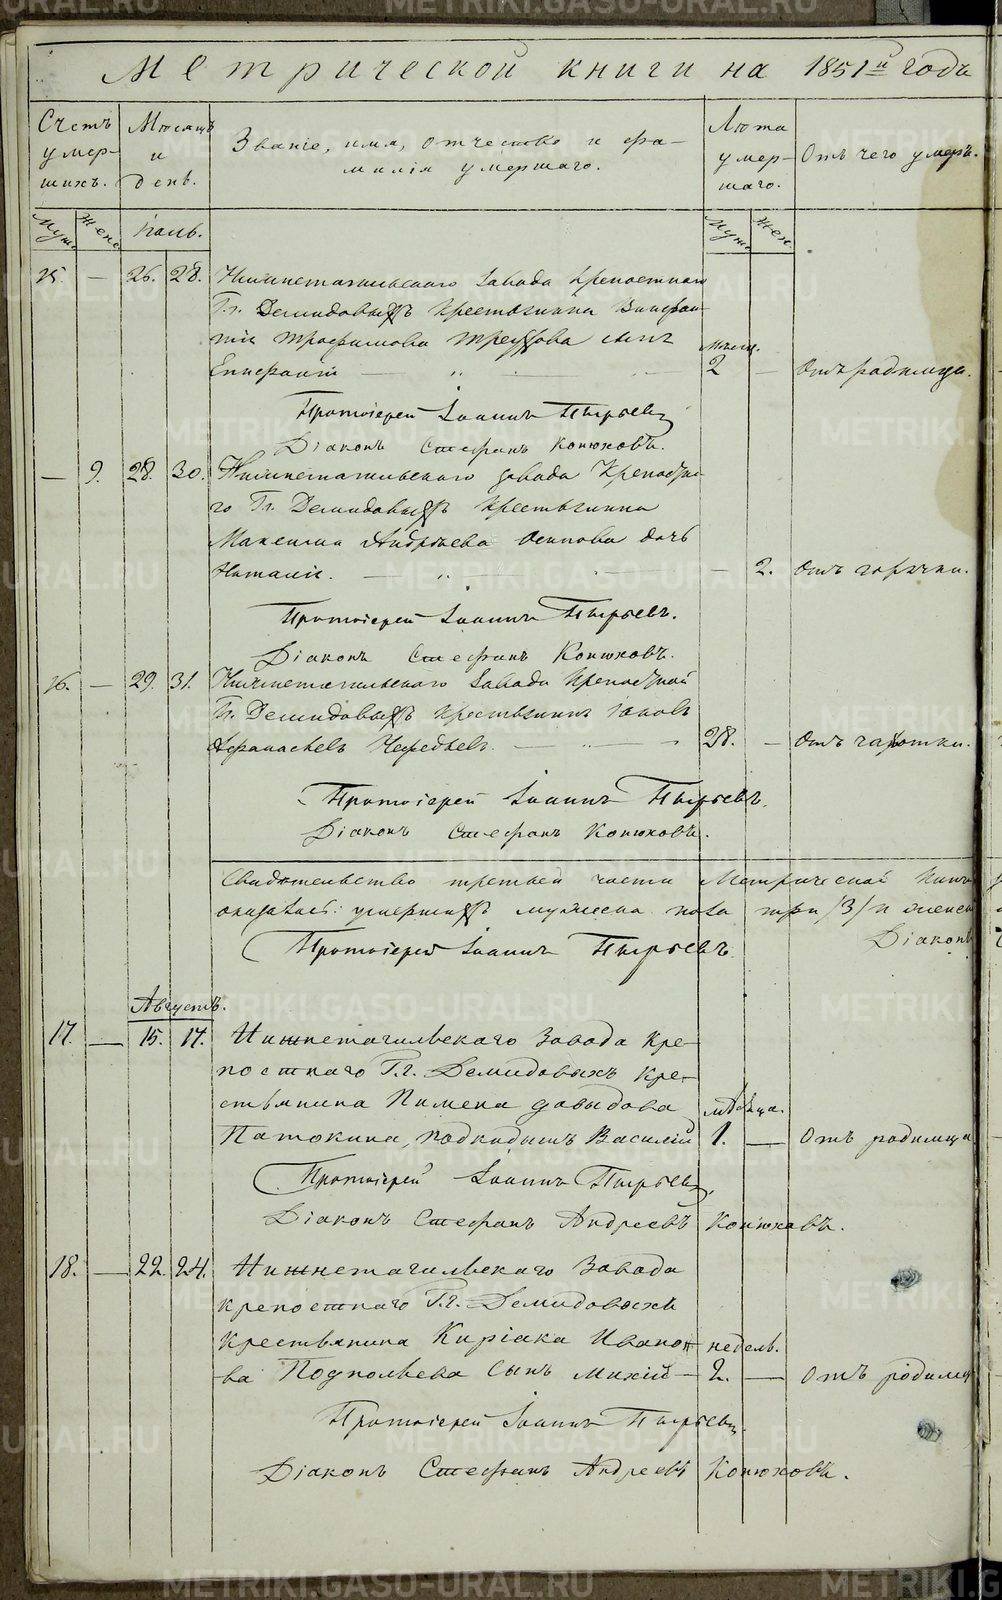 Метрической книги на 1851й годъ
Счетъ умер-шихъ. Мѣсяцъ и день. Званіе, имя, отчество и фа-милія умершаго. Лѣта умер-шаго. Отъ чего умеръ.
Муж. Жен. Іюль. Муж. Жен.
15. — 26. 28. Нижнетагильскаго завода крепостнаго
Гг. Демидовыхъ крестьянина
Трофимова сынъ мѣсяц.
2 — Отъ родимца.
Протоіерей Іоаннъ Пырьевъ
Діаконъ Стефанъ Конюховъ.
— 9. 28. 30. Нижнетагильскаго завода Крепостна-
го Гг. Демидовыхъ крестьянина
Максима Андрѣева Осипова дочь
Наталія. — 2. Отъ горячки.
Протоіерей Іоаннъ Пырьевъ.
Діаконъ Стефанъ Конюховъ.
16. — 29. 31. Нижнетагильскаго завода крепостной
Гг. Демидовыхъ крестьянинъ Іаковъ
Афанасьевъ 28. — Отъ чахотки.
Протоіерей Іоаннъ Пырьевъ.
Діаконъ Стефанъ Конюховъ.
Свидѣтельство третьей части Метрической Книги
оказалось: умершихъ мужеска пола три /3/ и женск
Протоіерей Іоаннъ Пырьевъ. Діаконъ
Августъ.
17. — 15. 17. Нижнетагильскаго Завода Кре-
постнаго Г.г. Демидовыхъ Кре-
стьянина Пимена Давыдова мѣсяца.
Патокина, подкидышъ Василій 1. — Отъ родимца
Протоіерей Іоаннъ Пырьевъ,
Діаконъ Стефанъ Андреевъ Конюховъ.
18. — 22. 24. Нижнетагильскаго Завода
крепостнаго Г.г. Демидовыхъ
Крестьянина Киріака Ивано- недѣль.
ва сынъ 2. — отъ родимц
Протоіерей Іоаннъ Пырьевъ.
Діаконъ Стефанъ Андреевъ Конюховъ.
METRIKI.GASO-URAL.RU